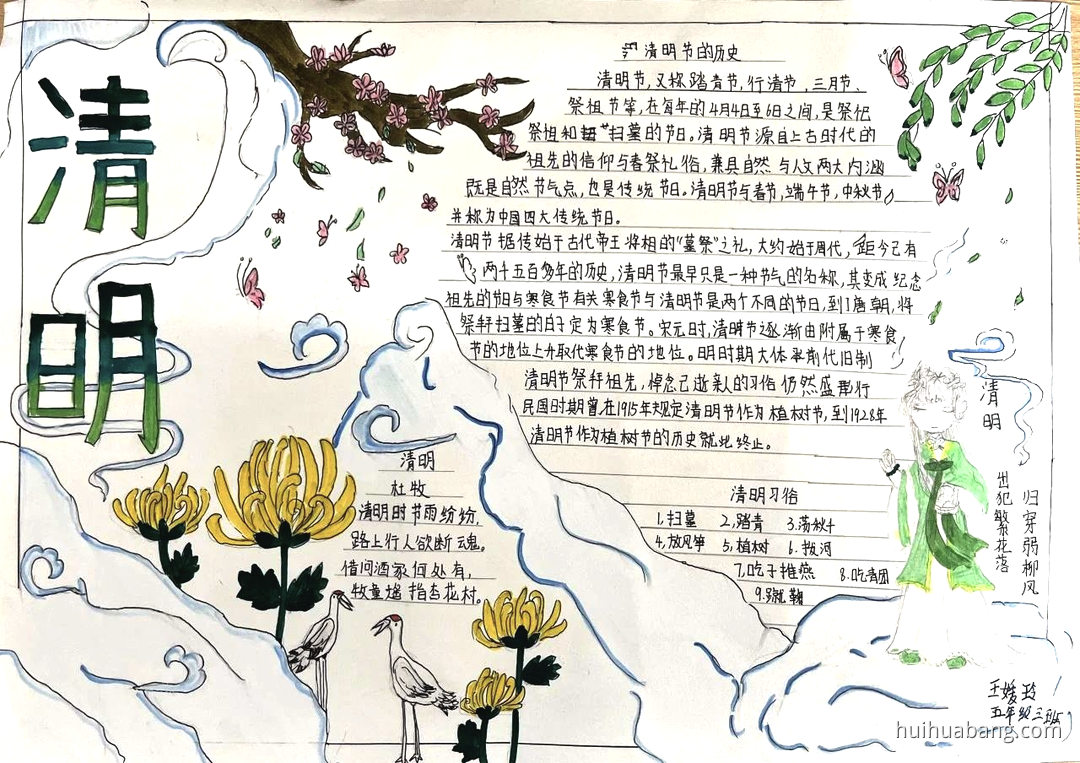 清明
清明节的历史
清明节,又称踏青节,行清节、三月节、
祭祖节等,在每年的4月4日至6日之间,是祭祀
祭祖和扫墓的节日。清明节源自上古时代的
祖先的信仰与春祭礼俗,兼具自然与人文两大内涵
既是自然节气点,也是传统节日。清明节与春节,端午节,中秋节
并称为中国四大传统节日。
清明节据传始于古代帝王将相的“墓祭”之礼,大约始于周代,距今已有
两千五百多年的历史,清明节最早只是一种节气的名称,其变成纪念
祖先的节日与寒食节有关寒食节与清明节是两个不同的节日,到唐朝,将
祭拜扫墓的日子定为寒食节。宋元时,清明节逐渐由附属于寒食
节的地位上升取代寒食节的地位。明时期大体承前代旧制
清明节祭拜祖先,悼念已逝亲人的习俗仍然盛行
民国时期曾在1915年规定清明节作为植树节,到1928年
清明节作为植树节的历史就此终止。
清明
杜牧
清明时节雨纷纷,
路上行人欲断魂。
借问酒家何处有,
牧童遥指杏花村。
清明习俗
1.扫墓 2.踏青 3.荡秋千
4.放风筝 5.植树 6.拔河
7.吃子推燕 8.吃青团
9.蹴鞠
清明
出犯繁花落
归穿弱柳风
王媛玲
五年级三班
huihuabang.com